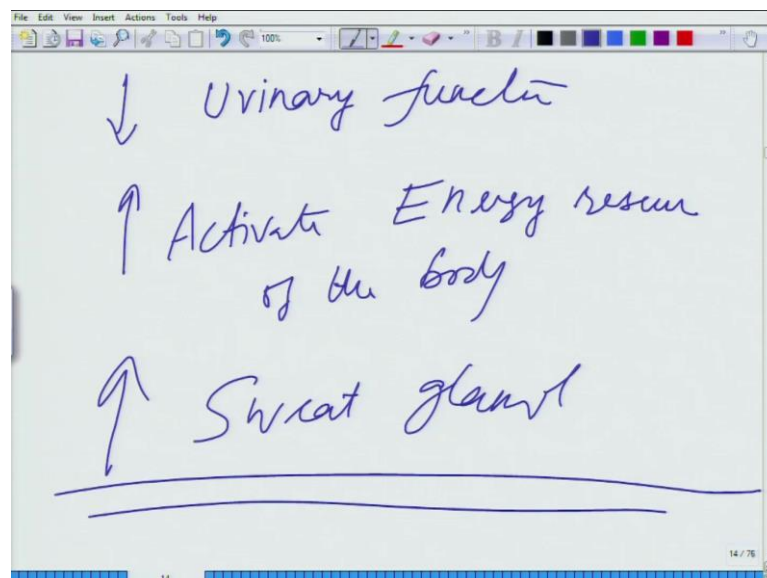 File Edit View Insert Actions Tools Help
100% B I
↓ Urinary functn
↑ Activate Energy reserv
of the body
↑ Sweat gland
14 / 76